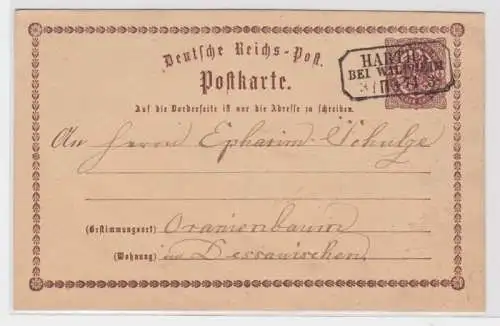 Deutsche Reichs-Post.
Postkarte.
HARTHA
BEI WALDHEIM
Auf die Vorderseite ist nur die Adresse zu schreiben.
An Herrn Epharim Schulze
(Bestimmungsort) Oranienbaum
(Wohnung) im Dessauischen.